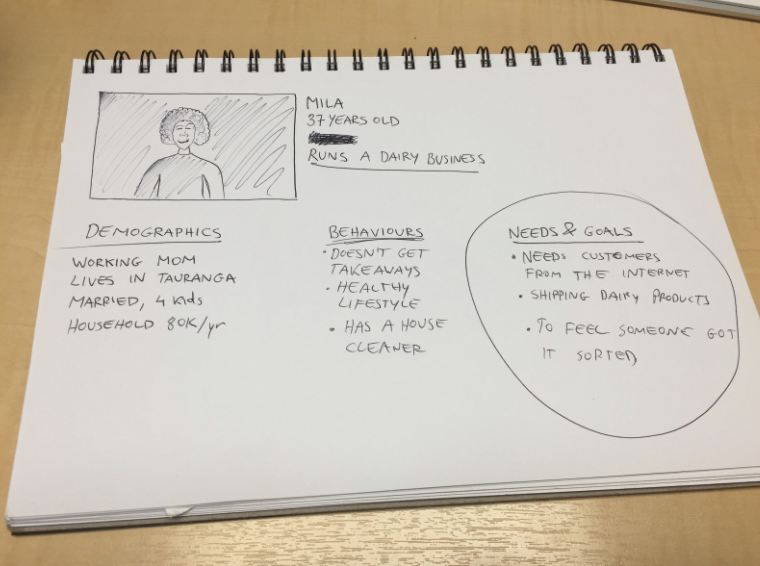 MILA
37 YEARS OLD
RUNS A DAIRY BUSINESS
DEMOGRAPHICS
WORKING MOM
LIVES IN TAURANGA
MARRIED, 4 KidS
HOUSEHOLD 80K/yr
BEHAVIOURS
• DOESN'T GET
TAKEAWAYS
• HEALTHY
LIFESTYLE
• HAS A HOUSE
CLEANER
NEEDS & GOALS
• NEEDS CUSTOMERS
FROM THE INTERNET
• SHIPPING DAIRY PRODUCTS
• TO FEEL SOMEONE GOT
IT SORTED